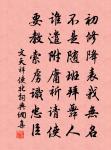 初修降表我無名
不是隨班拜舞人
誰遣附庸祈請使
要教索虜識忠臣
文天祥使北詞典網喜